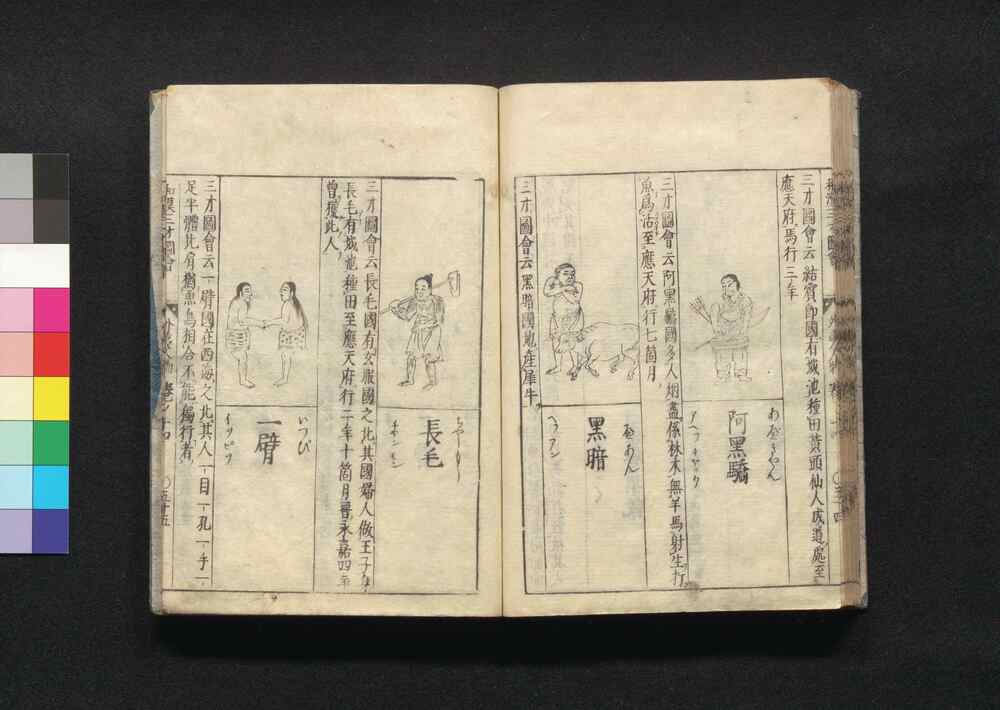 三才圖會云結賓郎國有城池種田黄頭仙人成道處至
應天府馬行三年
あがきやん
阿黑驕
三才圖會云阿黑驕國多人烟盡係林木無羊馬射生打
魚爲活至應天府行七箇月
黑暗
三才圖會云黑暗國地產犀牛
長毛
三才圖會云長毛國有玄服國之北其國婦人做王子身
長毛有城池種田至應天府行二年十箇月晋永嘉四年
曾獲此人
いつび
一臂
イツピツ
三才圖會云一臂國在西海之北其人一目一孔一手一
足半體比肩猶魚鳥相合不能獨行者
和漢三才圖會
○五十五